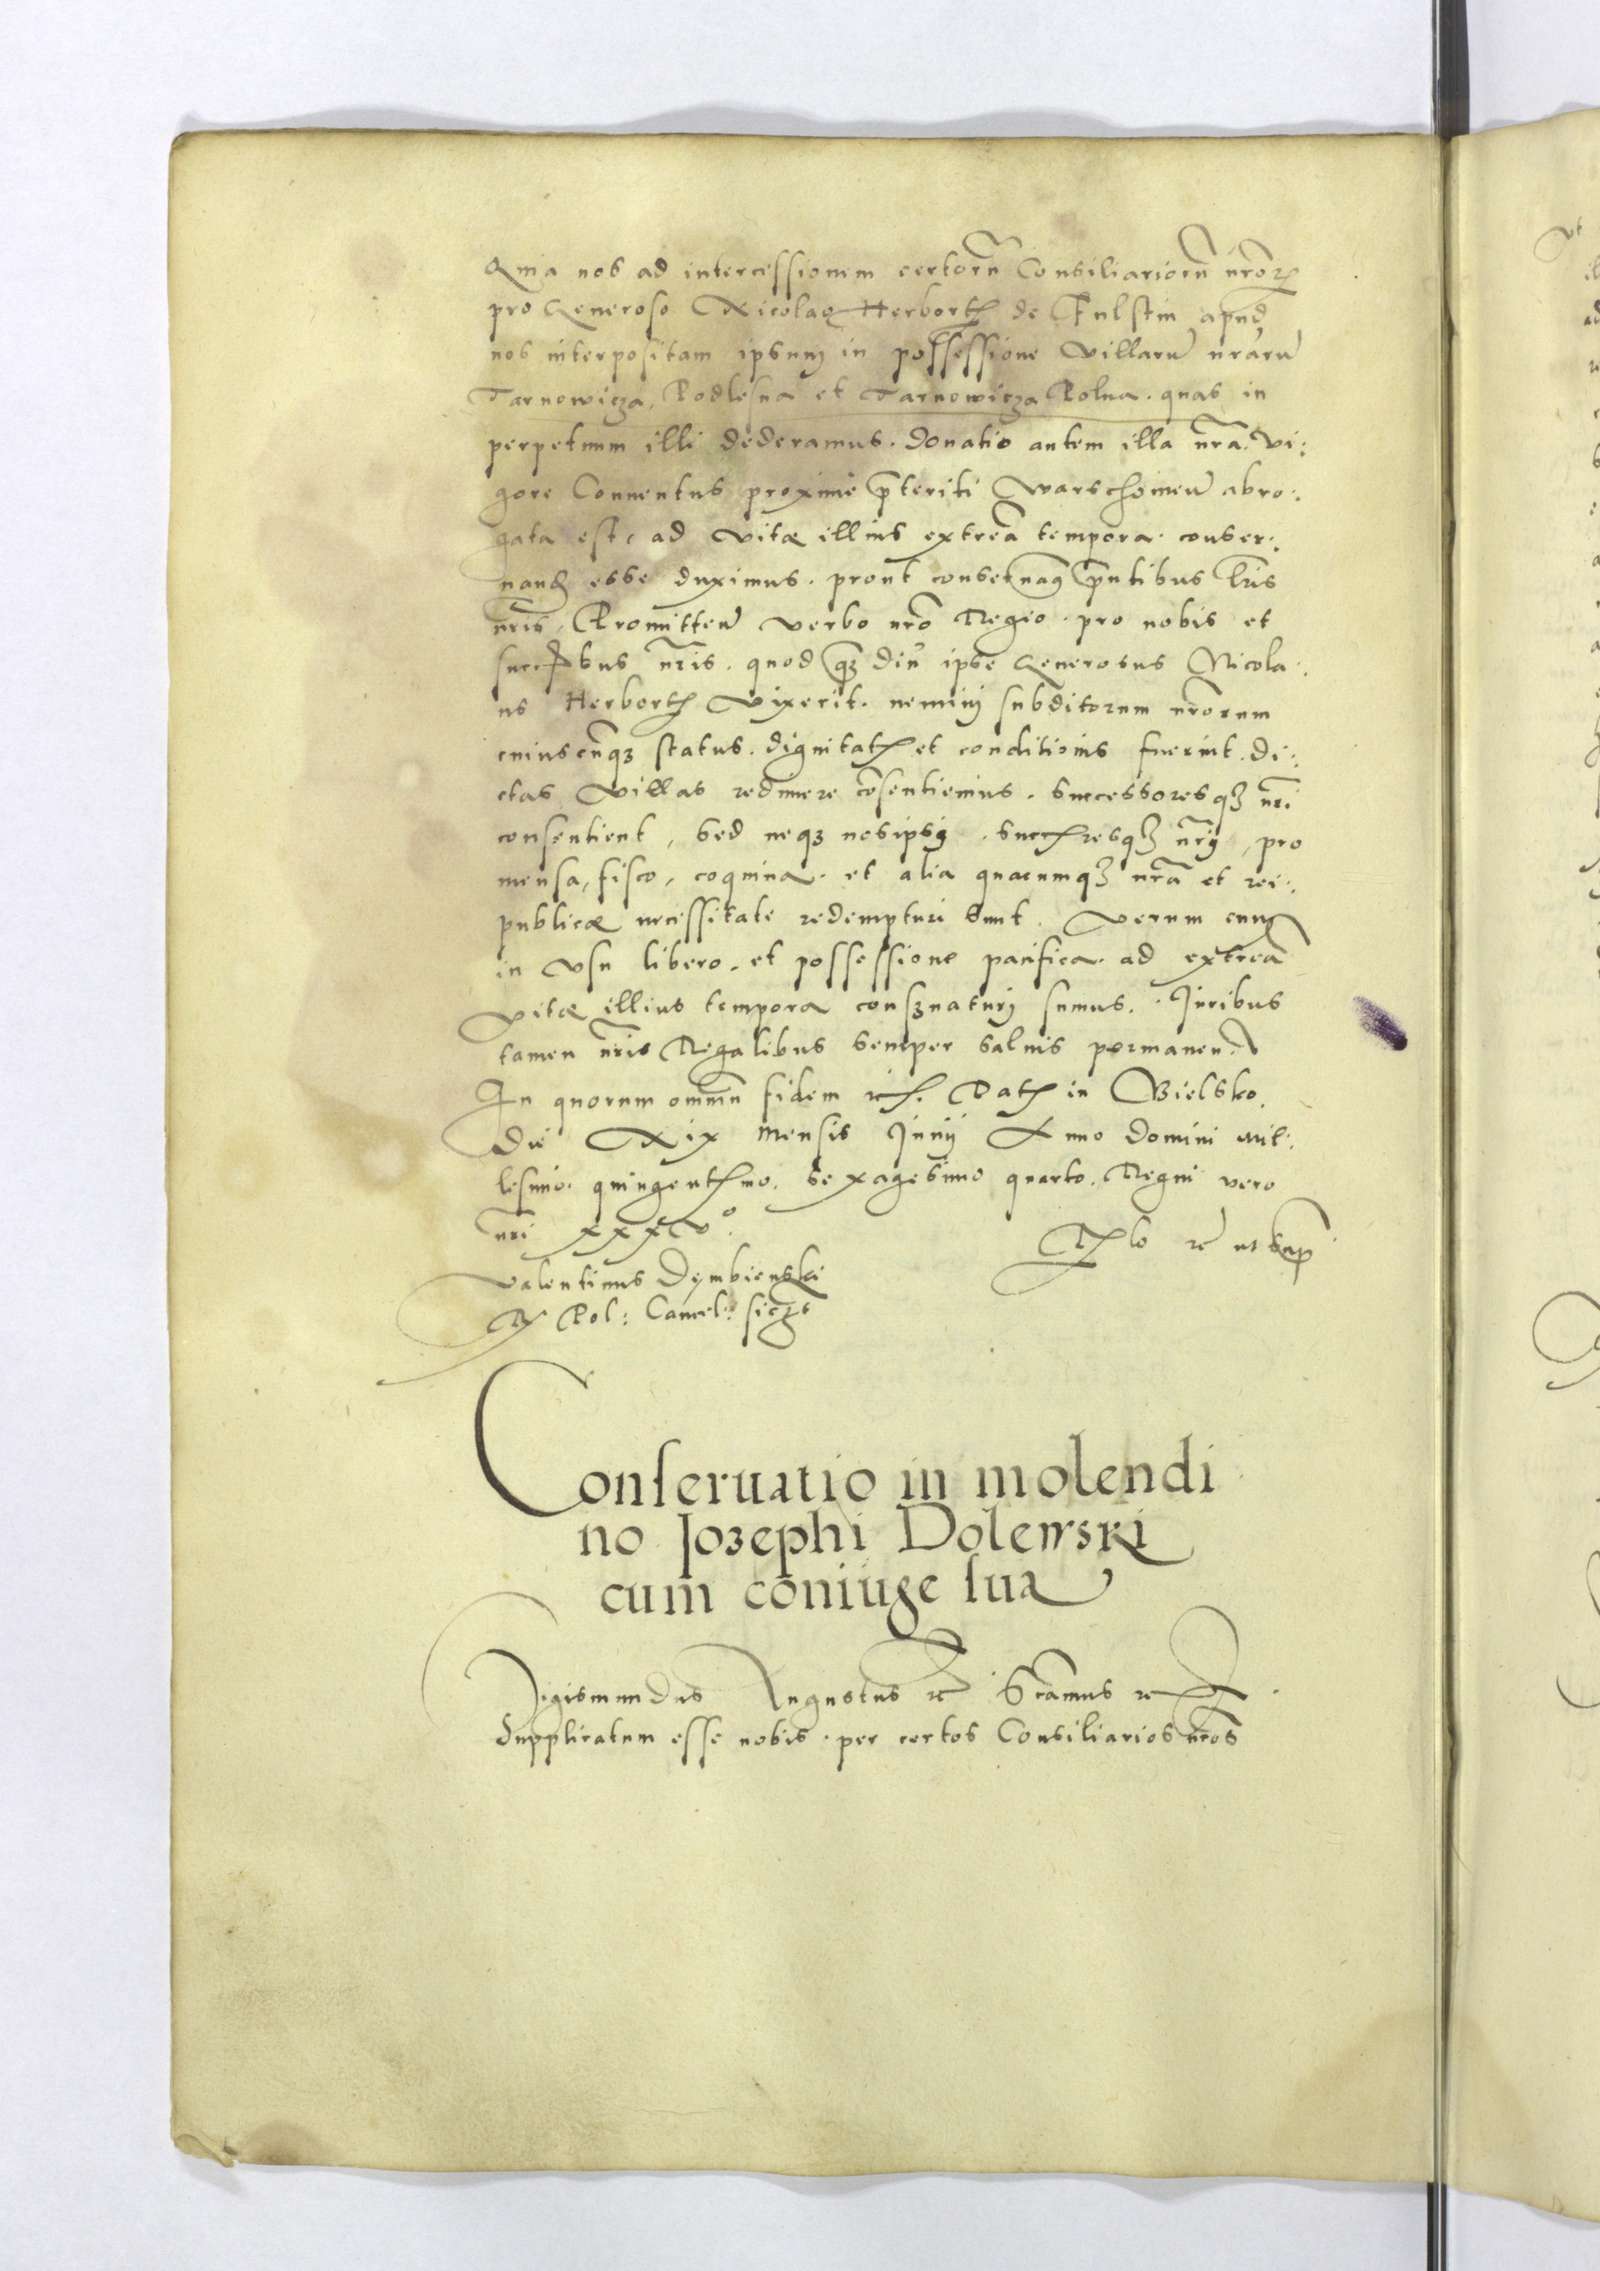 Quia nos ad intercessionem certorū Consiliariorū nrōrꝫ
pro Generoso Nicolao Herborth de Fulstin apud
nos interpositam ipsum in possessione villarū nrārū
Tarnowicza Podlesna et Tarnowicza Polna. quas in
perpetuum illi dederamus. donatio autem illa nrā. vi:
gore Conuentus proxime pteriti Warschouieñ abro:
gata est, ad vitæ illius extrea tempora. conser:
uand esse duximus. prout conseruamꝯ pntibus lris
nris. Promitteñ verbo nrō Regio. pro nobis et
succbus nris. quod qꝫ diu ipse Generosus Nicola
us Herborth vixerit. nemini subditorum nrōrum
cuiuscūqꝫ status. dignitatis et conditionis fuerint. di:
ctas villas redimere cōsentiemus. successoresqꝫ nri
consentient, sed neqꝫ nosipsi. succresqꝫ nrij, pro
mensa, fisco, coquina. et alia quacumqꝫ nrā et rei:
publicæ necessitate redempturi sunt. verum eum
in vsu libero. et possessione pacifica. ad extreā
vitæ illius tempora consꝫuaturi sumus. Juribus
tamen nris Regalibus semper saluis permaneñ.
In quorum omniū fidem etc. Dat in Bielsko.
die Xix mensis Junij Anno domini mil:
lesimo. quingentmo. sexagesimo quarto. Regni vero
nri xxxvº.
Rlo rē ut sup
Valentinus Dembienski
R Pol: Cancel: sst
Conseruatio in molendi
no Jozephi Dolewski
cum coniuge sua
Sigismundus Augustus etc Scāmus etc
Supplicatum esse nobis. per certos Consiliarios nrōs